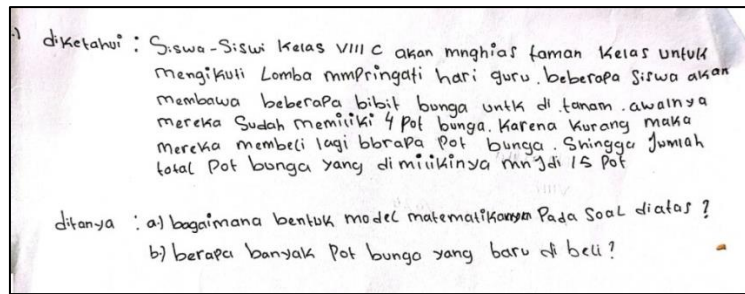 .) diketahui : Siswa-Siswi Kelas VIII C akan mnghias taman Kelas untuk
mengikuti Lomba mmpringati hari guru. beberapa siswa akan
membawa beberapa bibit bunga untk di tanam. awalnya
mereka Sudah memiliki 4 Pot bunga. Karena Kurang maka
mereka membeli lagi bbrapa Pot bunga. Shingga Jumlah
total Pot bunga yang dimilikinya mnjdi 15 Pot
ditanya : a) bagaimana bentuk model matematikanya Pada Soal diatas ?
b) berapa banyak Pot bunga yang baru di beli ?